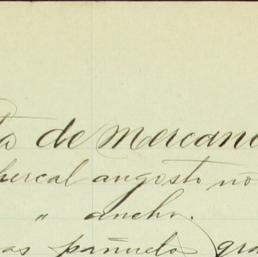 de Mercanc
percal angosto no
" ancho.
pañuelo gra